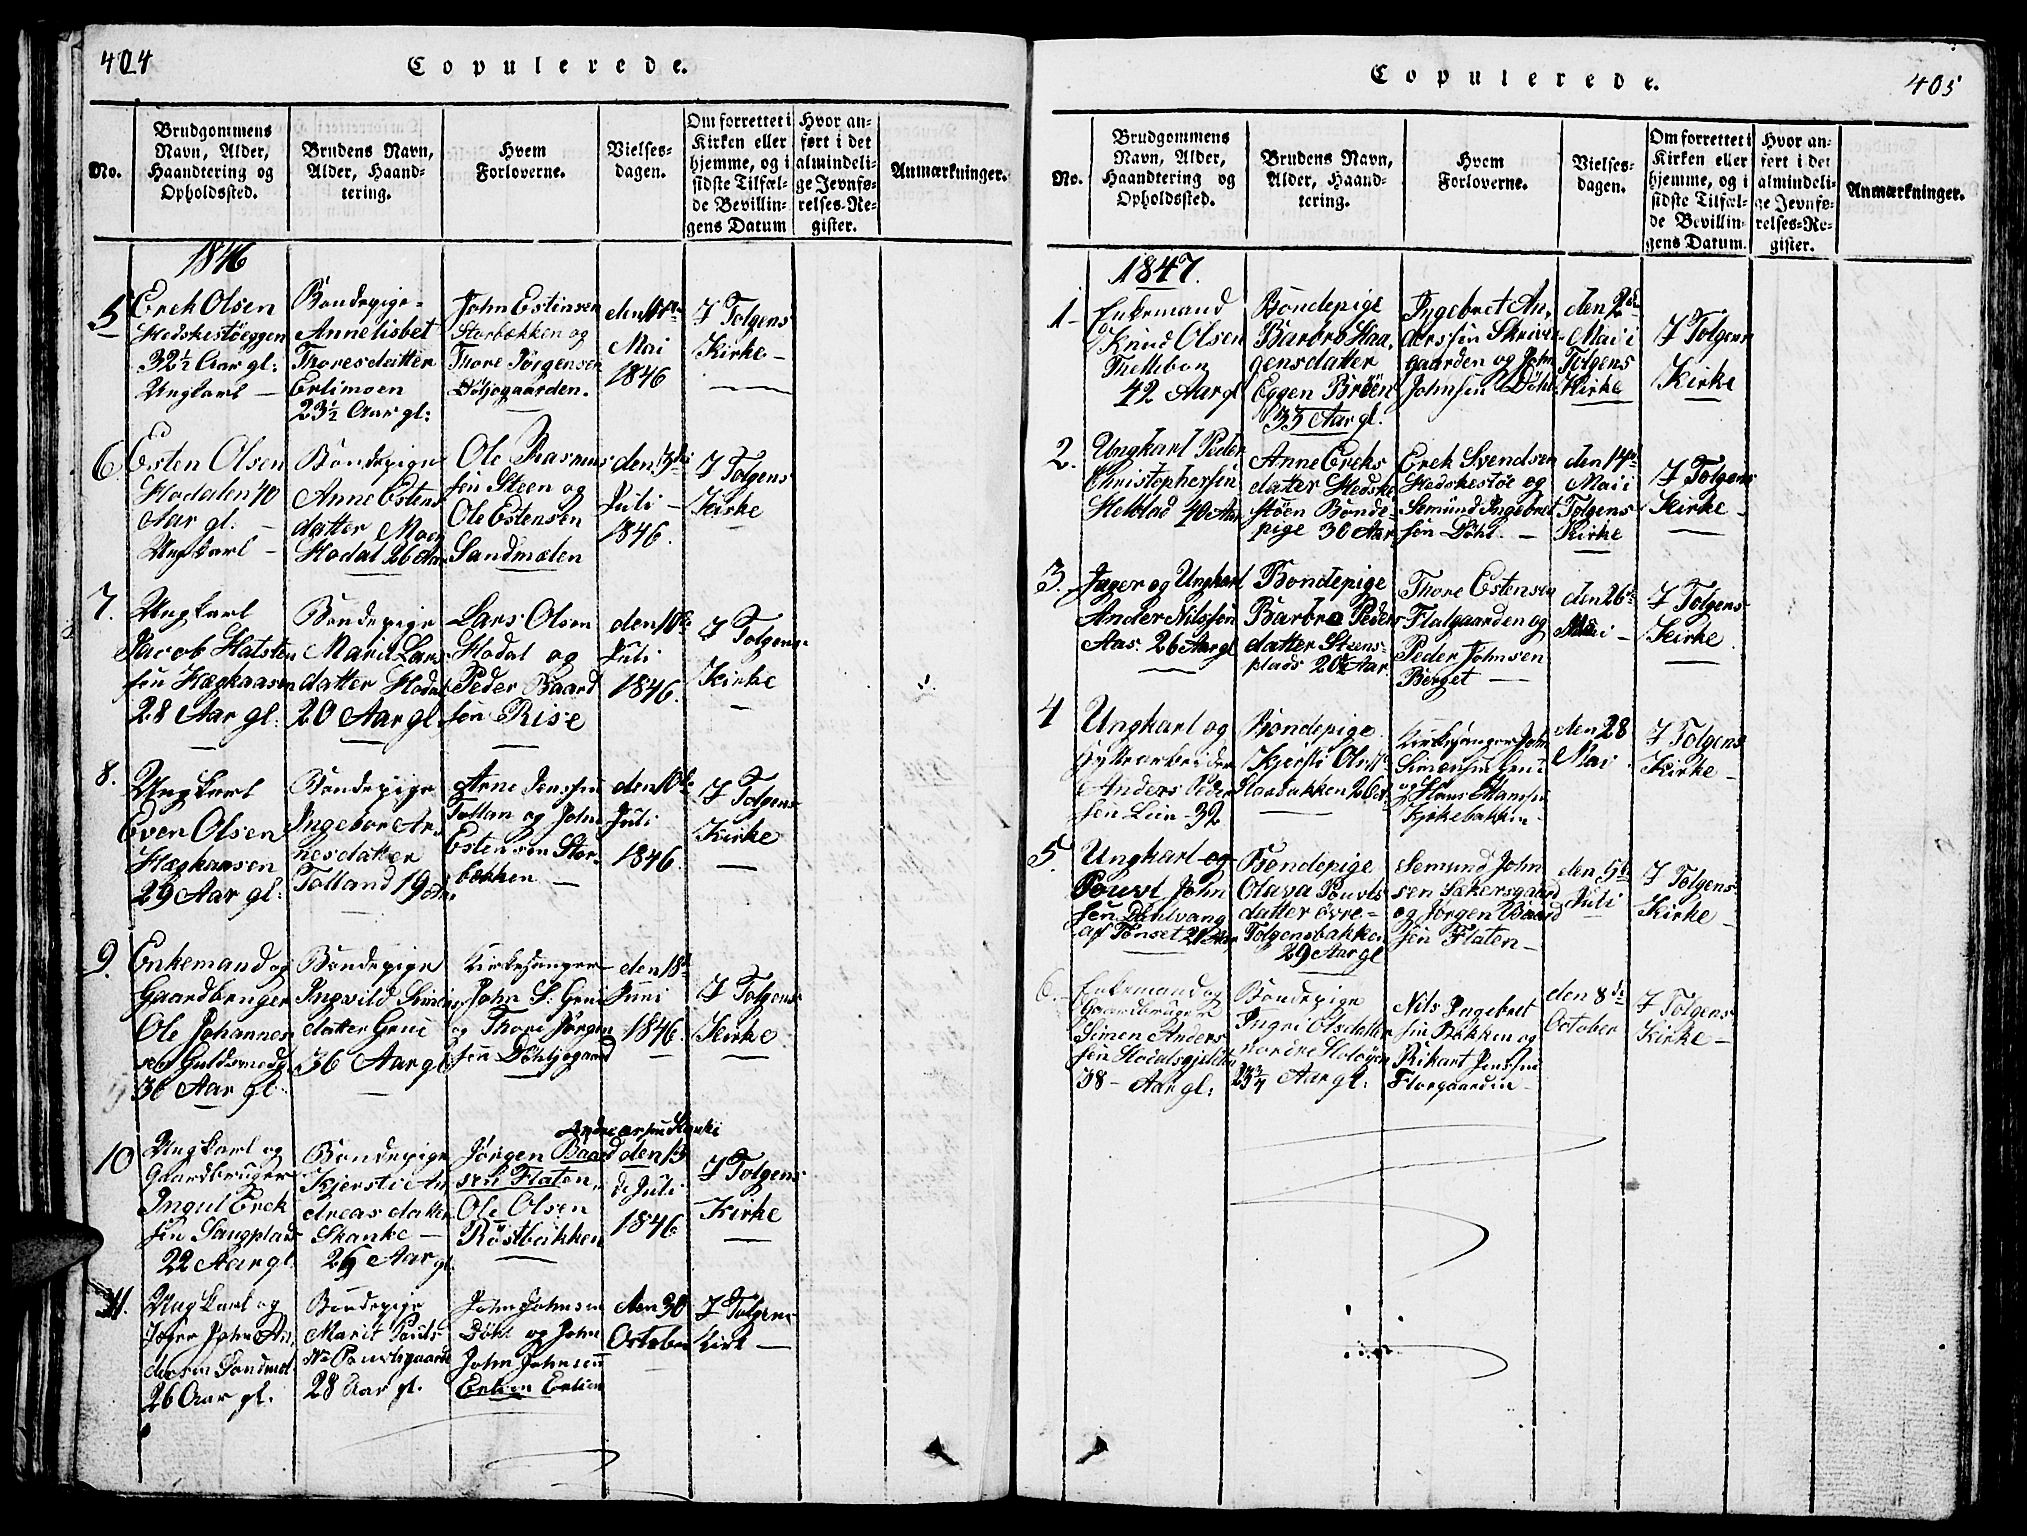 404
Copulerede.
No.
Brudgommens
Navn, Alder,
Haandtering og
Opholdssted.
Brudens Navn,
Alder, Haand-
tering.
Hvem
Forloverne.
Vielses-
dagen.
Om forrettet i
Kirken eller
hjemme, og i
sidste Tilfæl-
de Bevillin-
gens Datum
Hvor an-
ført i det
almindeli-
ge Jevnfø-
relses-Re-
gister.
Anmærkninger.
1846
5
Erek Olsen
Hodskestøeggen
32½ Aar gl:
Ungkarl
Bondepige
Annelisbet
Thoresdatter
Erlimoen
23½ Aar gl:
John Estinsen
Storbækken og
Thore Jørgensen
Døljegaarden.
Mai
1846
I Tolgens
Kirke
6
Esten Olsen
Hodalen 40
Aar gl.
Ungkarl
Bondepige
Anne Estens
datter Moen
Hodal 26 Aar
Ole Rasmus
sen Steen og
Ole Estensen
Sandmælen
Juli
1846.
I Tolgens
Kirke
7.
Ungkarl
Jacob Halsten
sen Hæghaasen
28 Aar gl.
Bondepige
Marit Lars
datter Hodal
20 Aar gl.
Lars Olsen
Hodal og
Peder Baard
sen Rise
Juli
1846.
I Tolgens
Kirke
8.
Ungkarl
Even Olsen
Hæghaasen
29 Aar gl.
Bondepige
Ingebor Ar
nesdatter
Tolland 19 Aar.
Arne Jenssen
Tollan og John
Estensen Stor-
bekken
den 10de
Juli
1846.
I Tolgens
Kirke
9.
Enkemand og
Gaardbruger
Ole Johannes
sen Guldsmed
36 Aar gl.
Bondepige
Ingvild Simens
datter Grue
36 Aar gl.
Kirkesanger
John S. Grue
og Thore Jørgen
sen Døhljegaard
den 18de
Juni
1846.
I Tolgens
Kirke
10
Ungkarl og
Gaardbruger
Ingul Erek
sen Langplads
22 Aar gl.
Bondepige
Kjersti An
dreasdatter
Skanke
Aar gl.
Jørgen Baard
sen Flaten.
Ole Olsen
Røstbakken
den 13
de Juli
1846
I Tolgens
Kirke
11.
Ungkarl og
John An
dersen
26 Aar gl.
Bondepige
Marit Pouls
28 Aar gl.
John Johnsen
Døhl og John
John Johnsen
Erlien Erlien
den 30
October
I Tolgens
Kirk
Copulerede.
405
No.
Brudgommens
Navn, Alder,
Haandtering og
Opholdssted.
Brudens Navn,
Alder, Haand-
tering.
Hvem
Forloverne.
Vielses-
dagen.
Om forrettet i
Kirken eller
hjemme, og i
sidste Tilfæl-
de Bevillin-
gens Datum.
Hvor an-
ført i det
almindeli-
ge Jevnfø-
relses-Re-
gister.
Anmærkninger.
1847.
1
Enkemand
Knud Olsen
42 Aar gl
Bondepige
Barbro Haa
gensdatter
Eggen Brøen
33 Aar gl.
Ingebret An
derssen Skriver
gaarden og John
Johnsen Døhl
den 2de
Mai i
Tolgens
Kirke
I Tolgens
Kirke
2.
Ungkarl Peder
Christophersen
40 Aar
Anne Ereks
datter Hodske
støen Bonde
pige 30 Aar
Erek Svendsen
Hodskestøe og
Semund Ingebret
sen Døhl.
den 14de
Mai i
Tolgens
Kirke
I Tolgens
Kirke
3.
Jæger og Ungkarl
Ander Nilssøn
Aas. 26 Aar gl
Bondepige
Barbro Peders
datter Steens-
plads Aar
Thore Estensen
Flatgaarden og
Peder Johnsen
Berget
den 26de
Mai
I Tolgens
Kirke
4
Ungkarl og
Hyttearbeider
Anders Peder
sen Lien 32
Bondepige
Kjersti Ols
Kirkesanger John
Simensen Grue
og Hans Hansen
Kirkebakken
den 28
Mai
I Tolgens
Kirke
5.
Ungkarl og
Pouvel John
sen Dahlvang
af Tønset Aar
Bondepige
Olava Pouvels
datter øvre
Tolgensbakken
29 Aar gl
Semund John
sen Lakersgaard
og Jørgen Baard
sen Flaten
den 5te
Juli
I Tolgens
Kirke
6.
Enkemand og
Gaardbruger
Simen Anders
sen
38 Aar gl:
Bondepige
Ingri Olsdatter
Aar gl:
Nils Ingebret
sen Bakken og
Rikart Jenssen
Florgaarden
den 8de
October
I Tolgens
Kirke